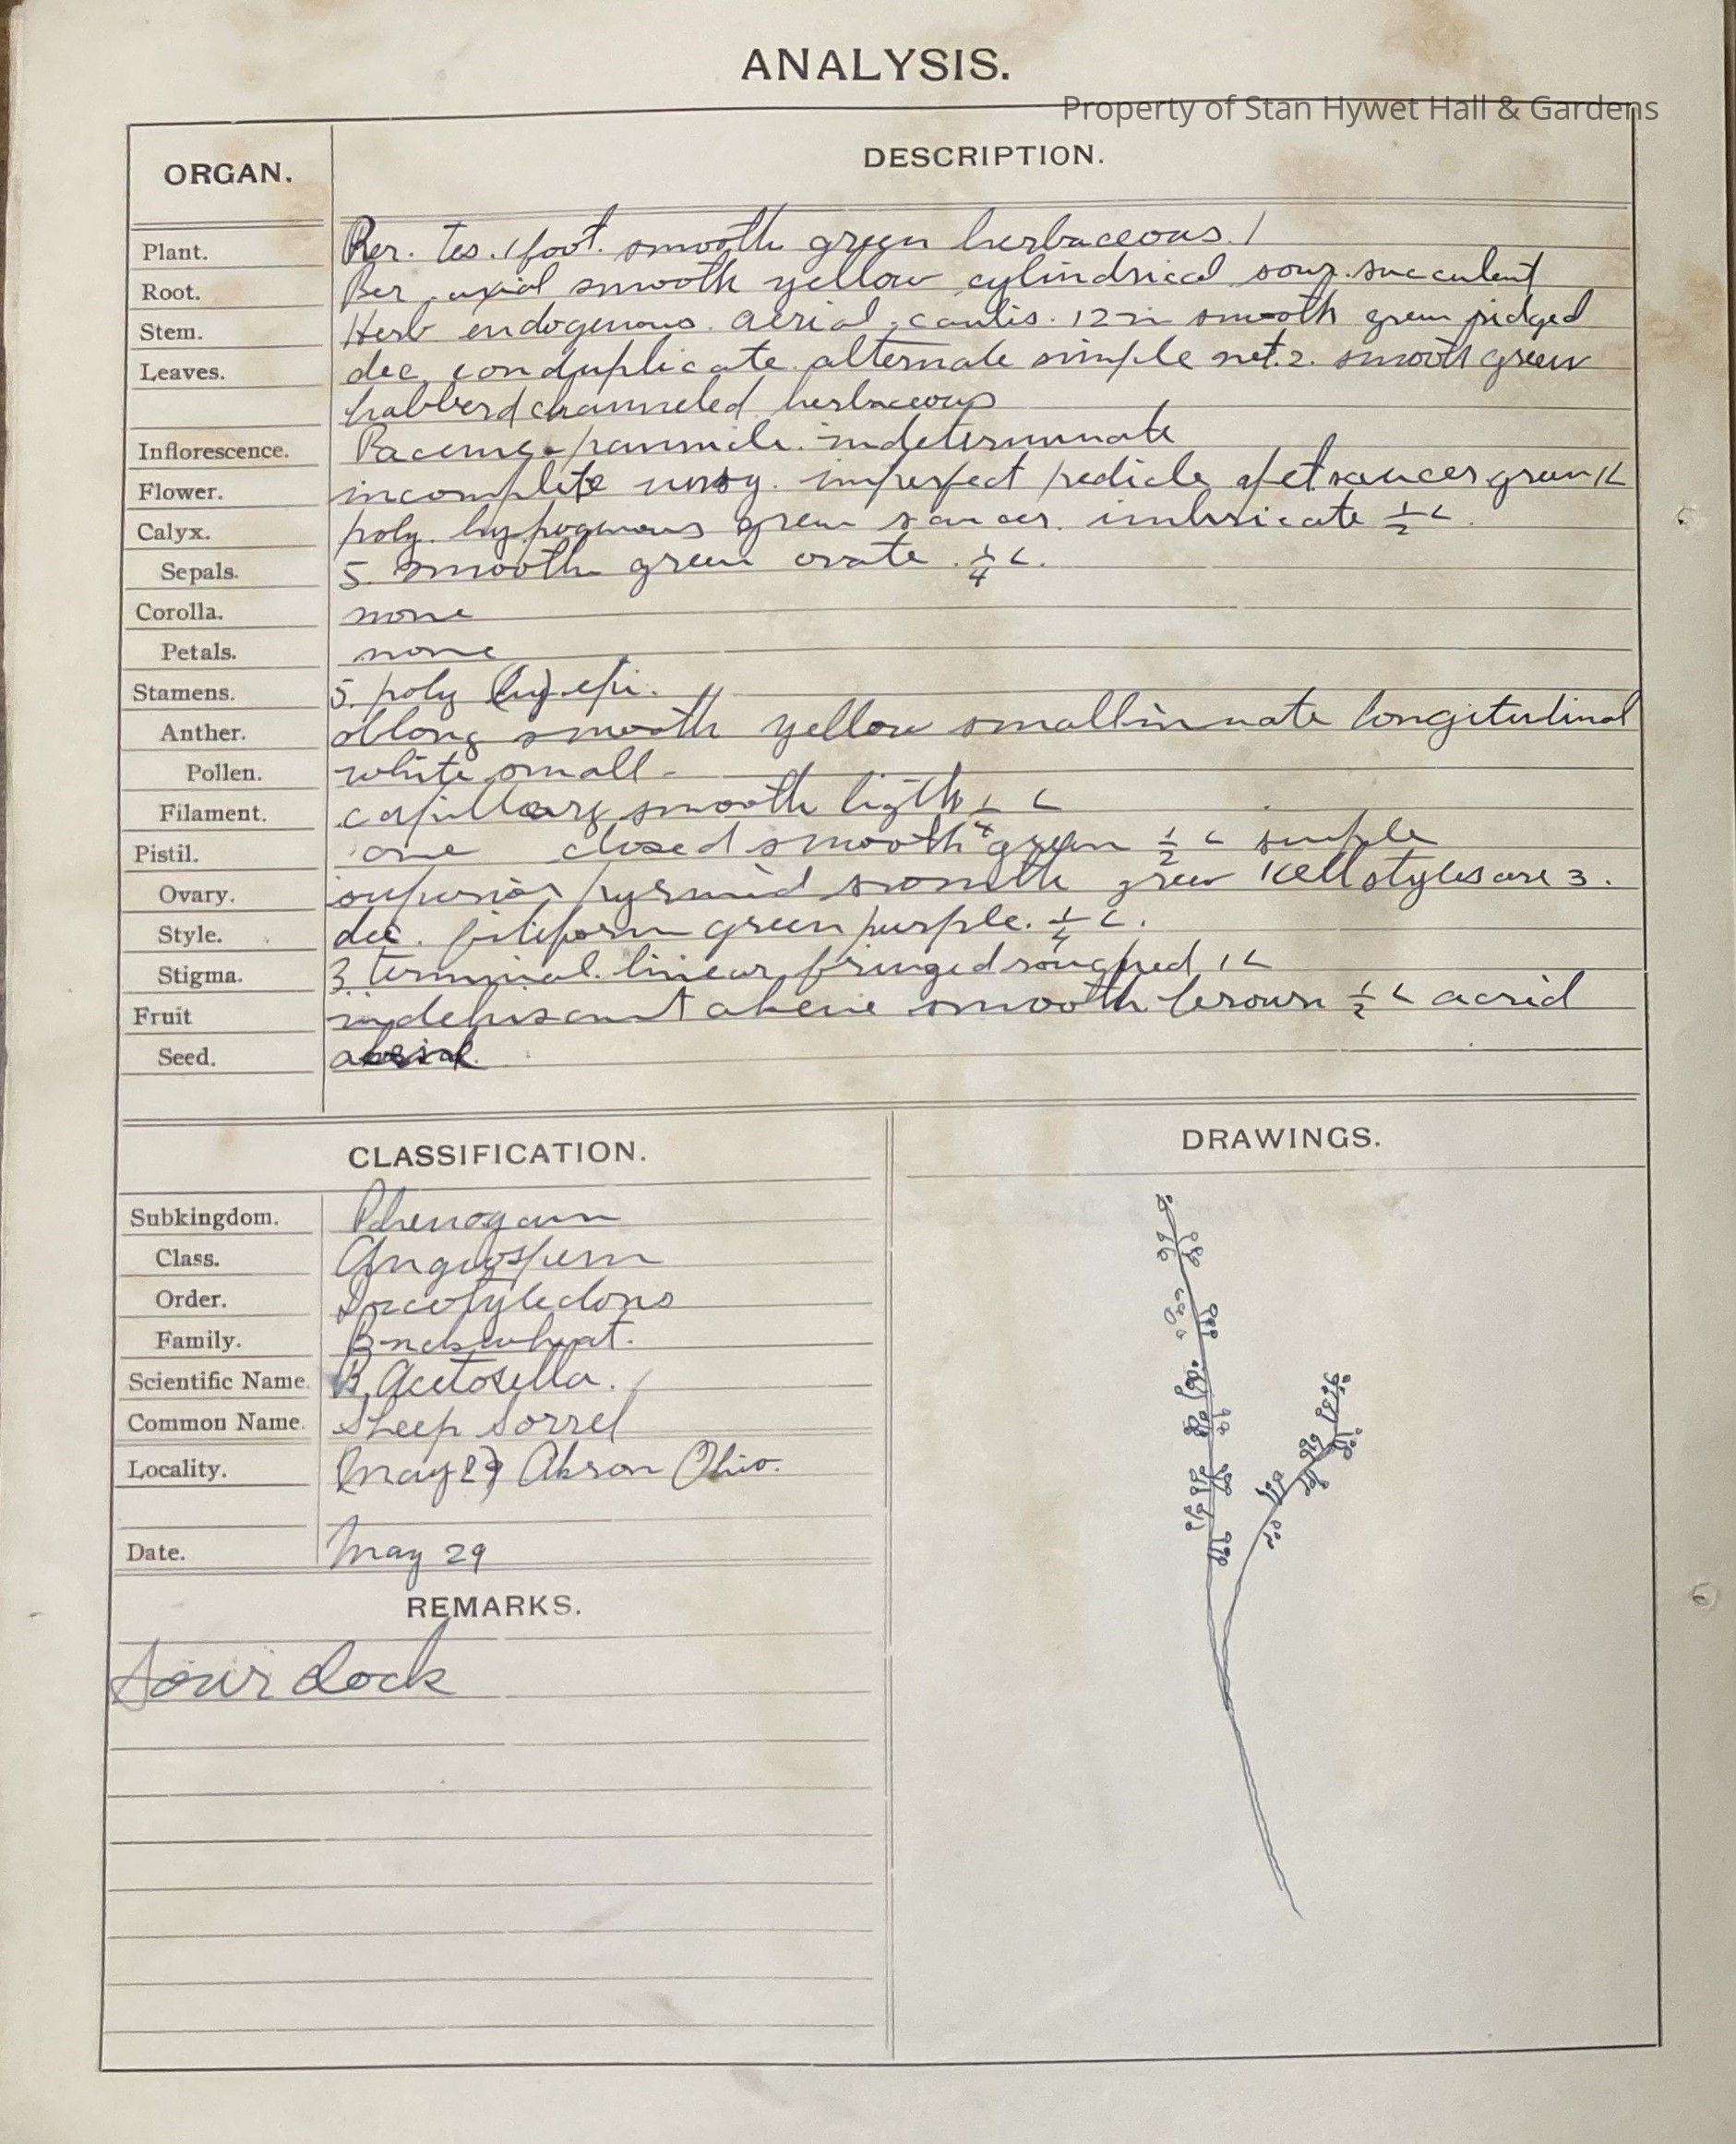 ANALYSIS.
Property of Stan Hywet Hall & Gardens
ORGAN. DESCRIPTION.
Plant. Per. tes. 1 foot. smooth green herbaceous.
Root. Per. axial smooth yellow cylindrical sour. succulent
Stem. Herb endogenous. aerial, caulis. 12 in smooth green ridged
Leaves. dec. conduplicate alternate simple net. 2. smooth green
channeled herbaceous
Inflorescence. Raceme panicle. indeterminate
Flower. incomplete imperfect pedicle apet saucer green 1L
Calyx. poly. hypogenous green saucer. imbricate 1/2 L.
Sepals. 5. smooth green ovate. 1/4 L.
Corolla. none
Petals. none
Stamens. 5. poly (hy) epi.
Anther. oblong smooth yellow small innate longitudinal
Pollen. white small
Filament. capillary smooth ligth 1/4 L
Pistil. one closed smooth green 1/2 L simple
Ovary. superior pyramid smooth green 1 cell styles are 3.
Style. dec. filiform green purple. 1/4 L.
Stigma. 3 terminal. linear fringed 1 L
Fruit indehiscent akene smooth brown 1/2 L acrid
Seed.
CLASSIFICATION.
DRAWINGS.
Subkingdom. Phenogam
Class. Angiosperm
Order. Dicotyledons
Family. Buckwheat.
Scientific Name. R. Acetosella.
Common Name. Sheep Sorrel
Locality. (May 29) Akron Ohio.
Date. May 29
REMARKS.
Sour dock